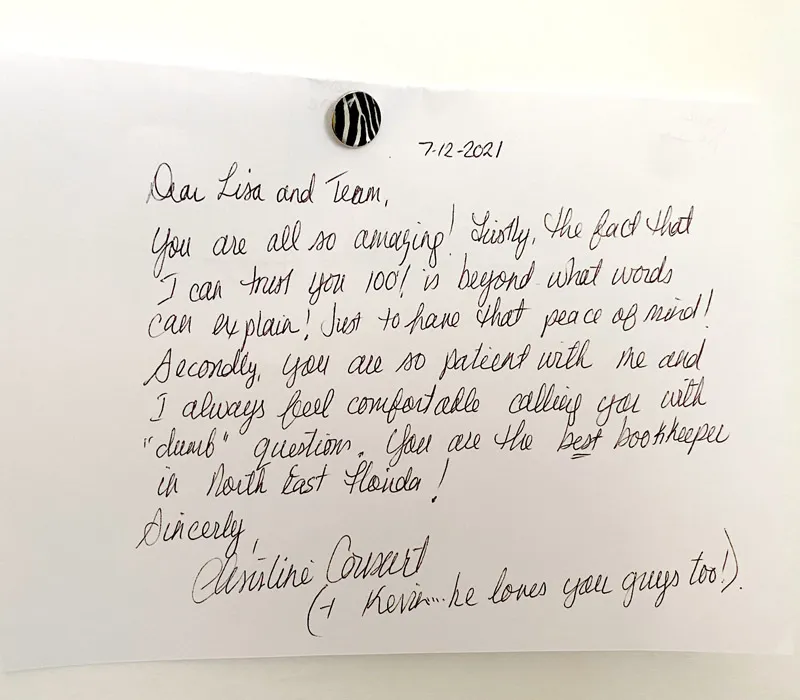 7-12-2021
Dear Lisa and Team,
You are all so amazing! Firstly, the fact that
I can trust you 100% is beyond what words
can explain! Just to have that peace of mind!
Secondly, you are so patient with me and
I always feel comfortable calling you with
"dumb" questions. You are the best bookkeeper
in North East Florida!
Sincerly,
Christine
(+ Kevin... he loves you guys too!).